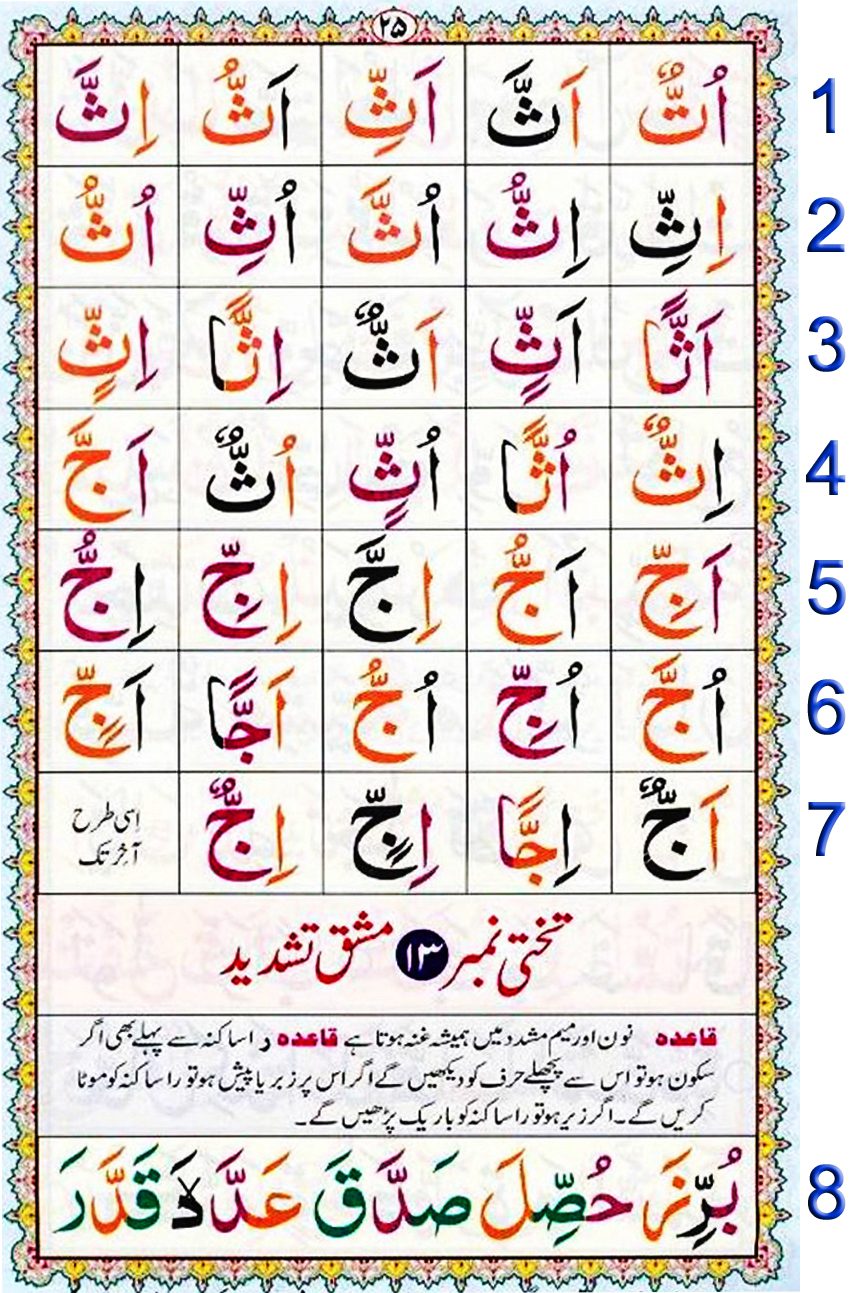 ۲۵
اُتٌّ اَثَّ اَثِّ اَثُّ اِثَّ 1
اِثِّ اِثُّ اُثَّ اُثِّ اُثُّ 2
اَثًّا اَثٍّ اَثٌّ اِثًّا اِثٍّ 3
اِثٌّ اُثًّا اُثٍّ اُثٌّ اَجَّ 4
اَجِّ اَجُّ اِجَّ اِجِّ اِجُّ 5
اُجَّ اُجِّ اُجُّ اَجًّا اَجٍّ 6
اَجٌّ اِجًّا اِجٍّ اِجٌّ اِسی طرح آخر تک 7
تختی نمبر ۱۳ مشق تشدید
قاعدہ نون اور میم مشدد میں ہمیشہ غنہ ہوتا ہے قاعدہ را ساکنہ سے پہلے بھی اگر
سکون ہو تو اس سے پچھلے حرف کو دیکھیں گے اگر اس پر زبر یا پیش ہو تو را ساکنہ کو موٹا
کریں گے۔ اگر زیر ہو تو را ساکنہ کو باریک پڑھیں گے۔
بُرِّزَ حُصِّلَ صَدَّقَ عَدَّدَ قَدَّرَ 8